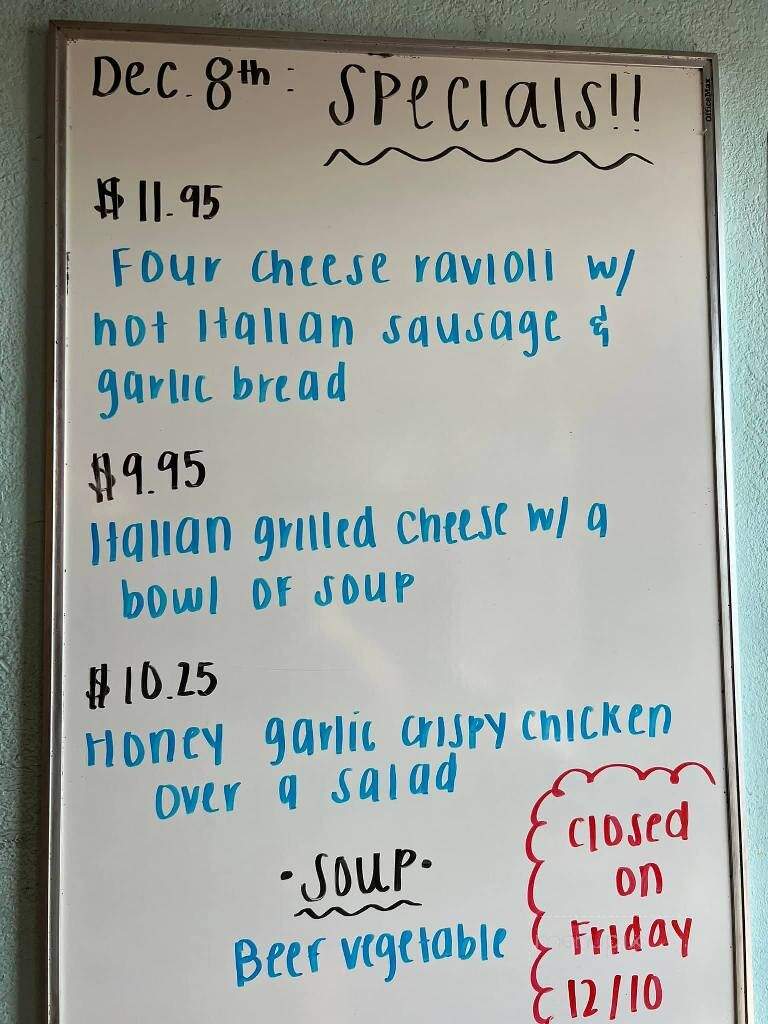 Dec. 8th: Specials!!
OfficeMax
$11.95
Four cheese ravioli w/
hot Italian sausage &
garlic bread
$9.95
Italian grilled cheese w/ a
bowl of soup
$10.25
Honey garlic crispy chicken
over a salad
•Soup•
Beef vegetable
closed
on
Friday
12/10